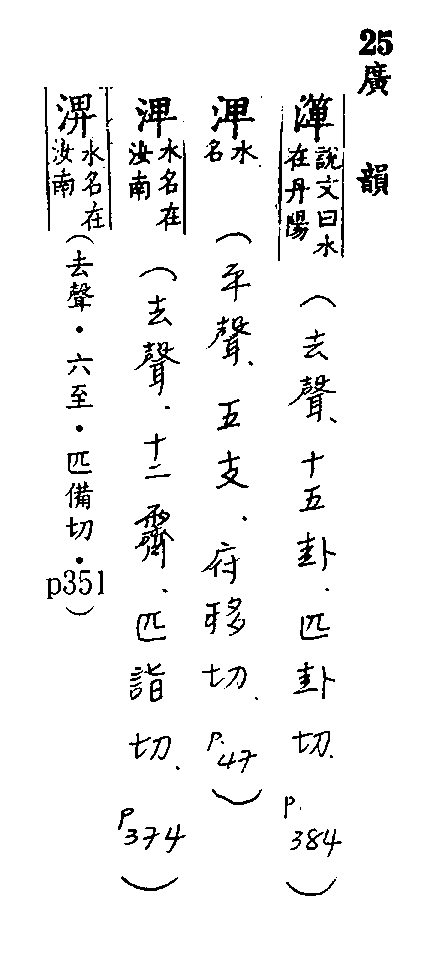 25 廣韻
渒 說文曰水在丹陽（去聲、十五卦、匹卦切、p.384）
渒 水名（平聲、五支、府移切、p.47）
渒 水名在汝南（去聲、十二霽、匹詣切、p374）
淠 水名在汝南（去聲．六至．匹備切．p351）